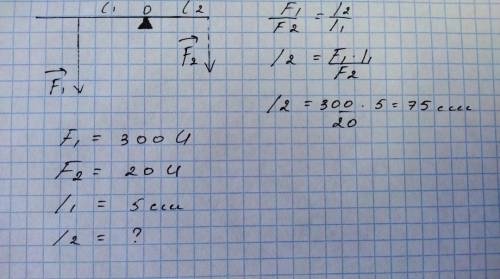 l₁ 0 l₂
F₁ F₂
F₁ = 300 Н
F₂ = 20 Н
l₁ = 5 см
l₂ = ?
F₁/F₂ = l₂/l₁
l₂ = F₁·l₁/F₂
l₂ = 300/20 · 5 = 75 см